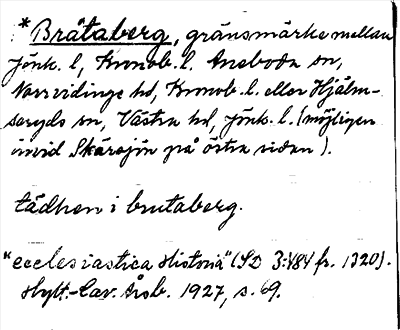 *Bråtaberg, gränsmärke mellan
Jönk. l, Kronob. l. Aneboda sn,
Norrvidinge hd, Kronob. l. eller Hjälm-
seryds sn, Västra hd, Jönk. l. (möjligen
invid Skärsjön på östra sidan).
tädhen i brutaberg.
"ecclesiastica Historia" (SD 3:484 fr. 1320).
Hylt.-Cav. Årsb. 1927, s. 69.